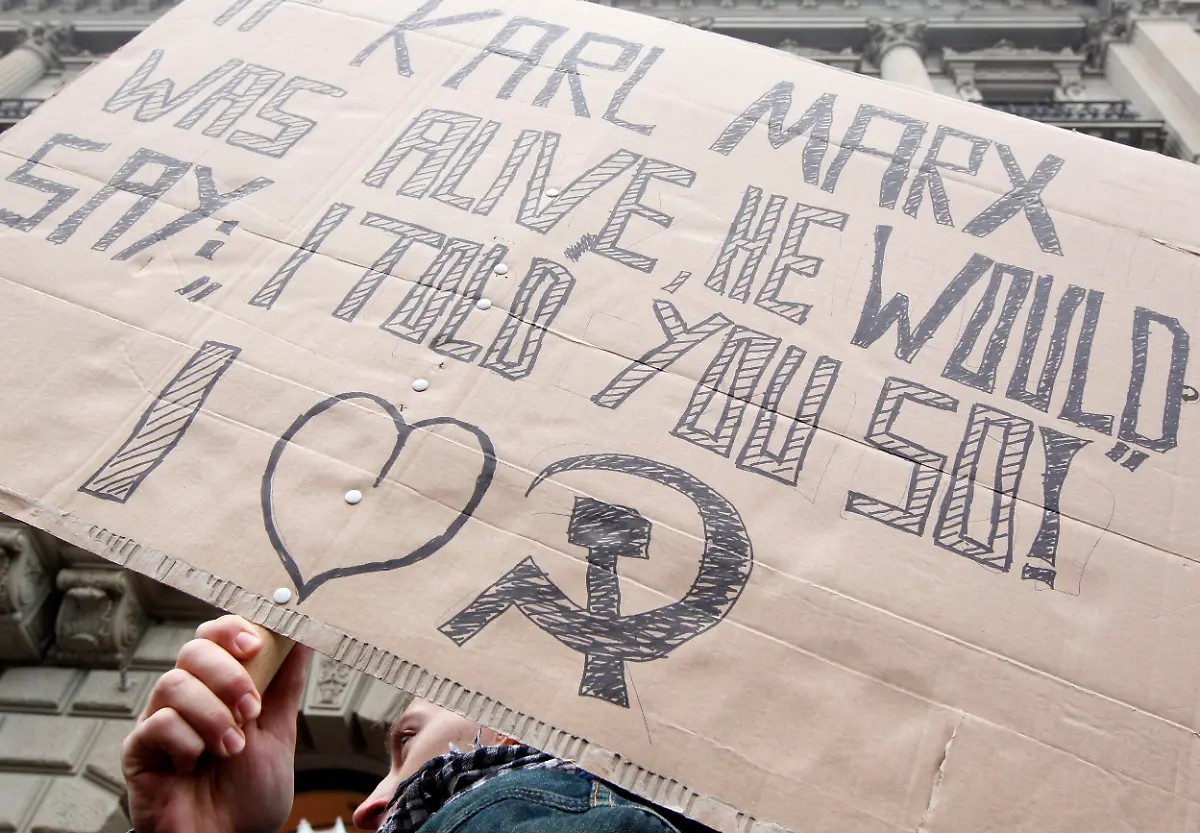 IF KARL MARX
WAS ALIVE, HE WOULD
SAY: „I TOLD YOU SO!"
I